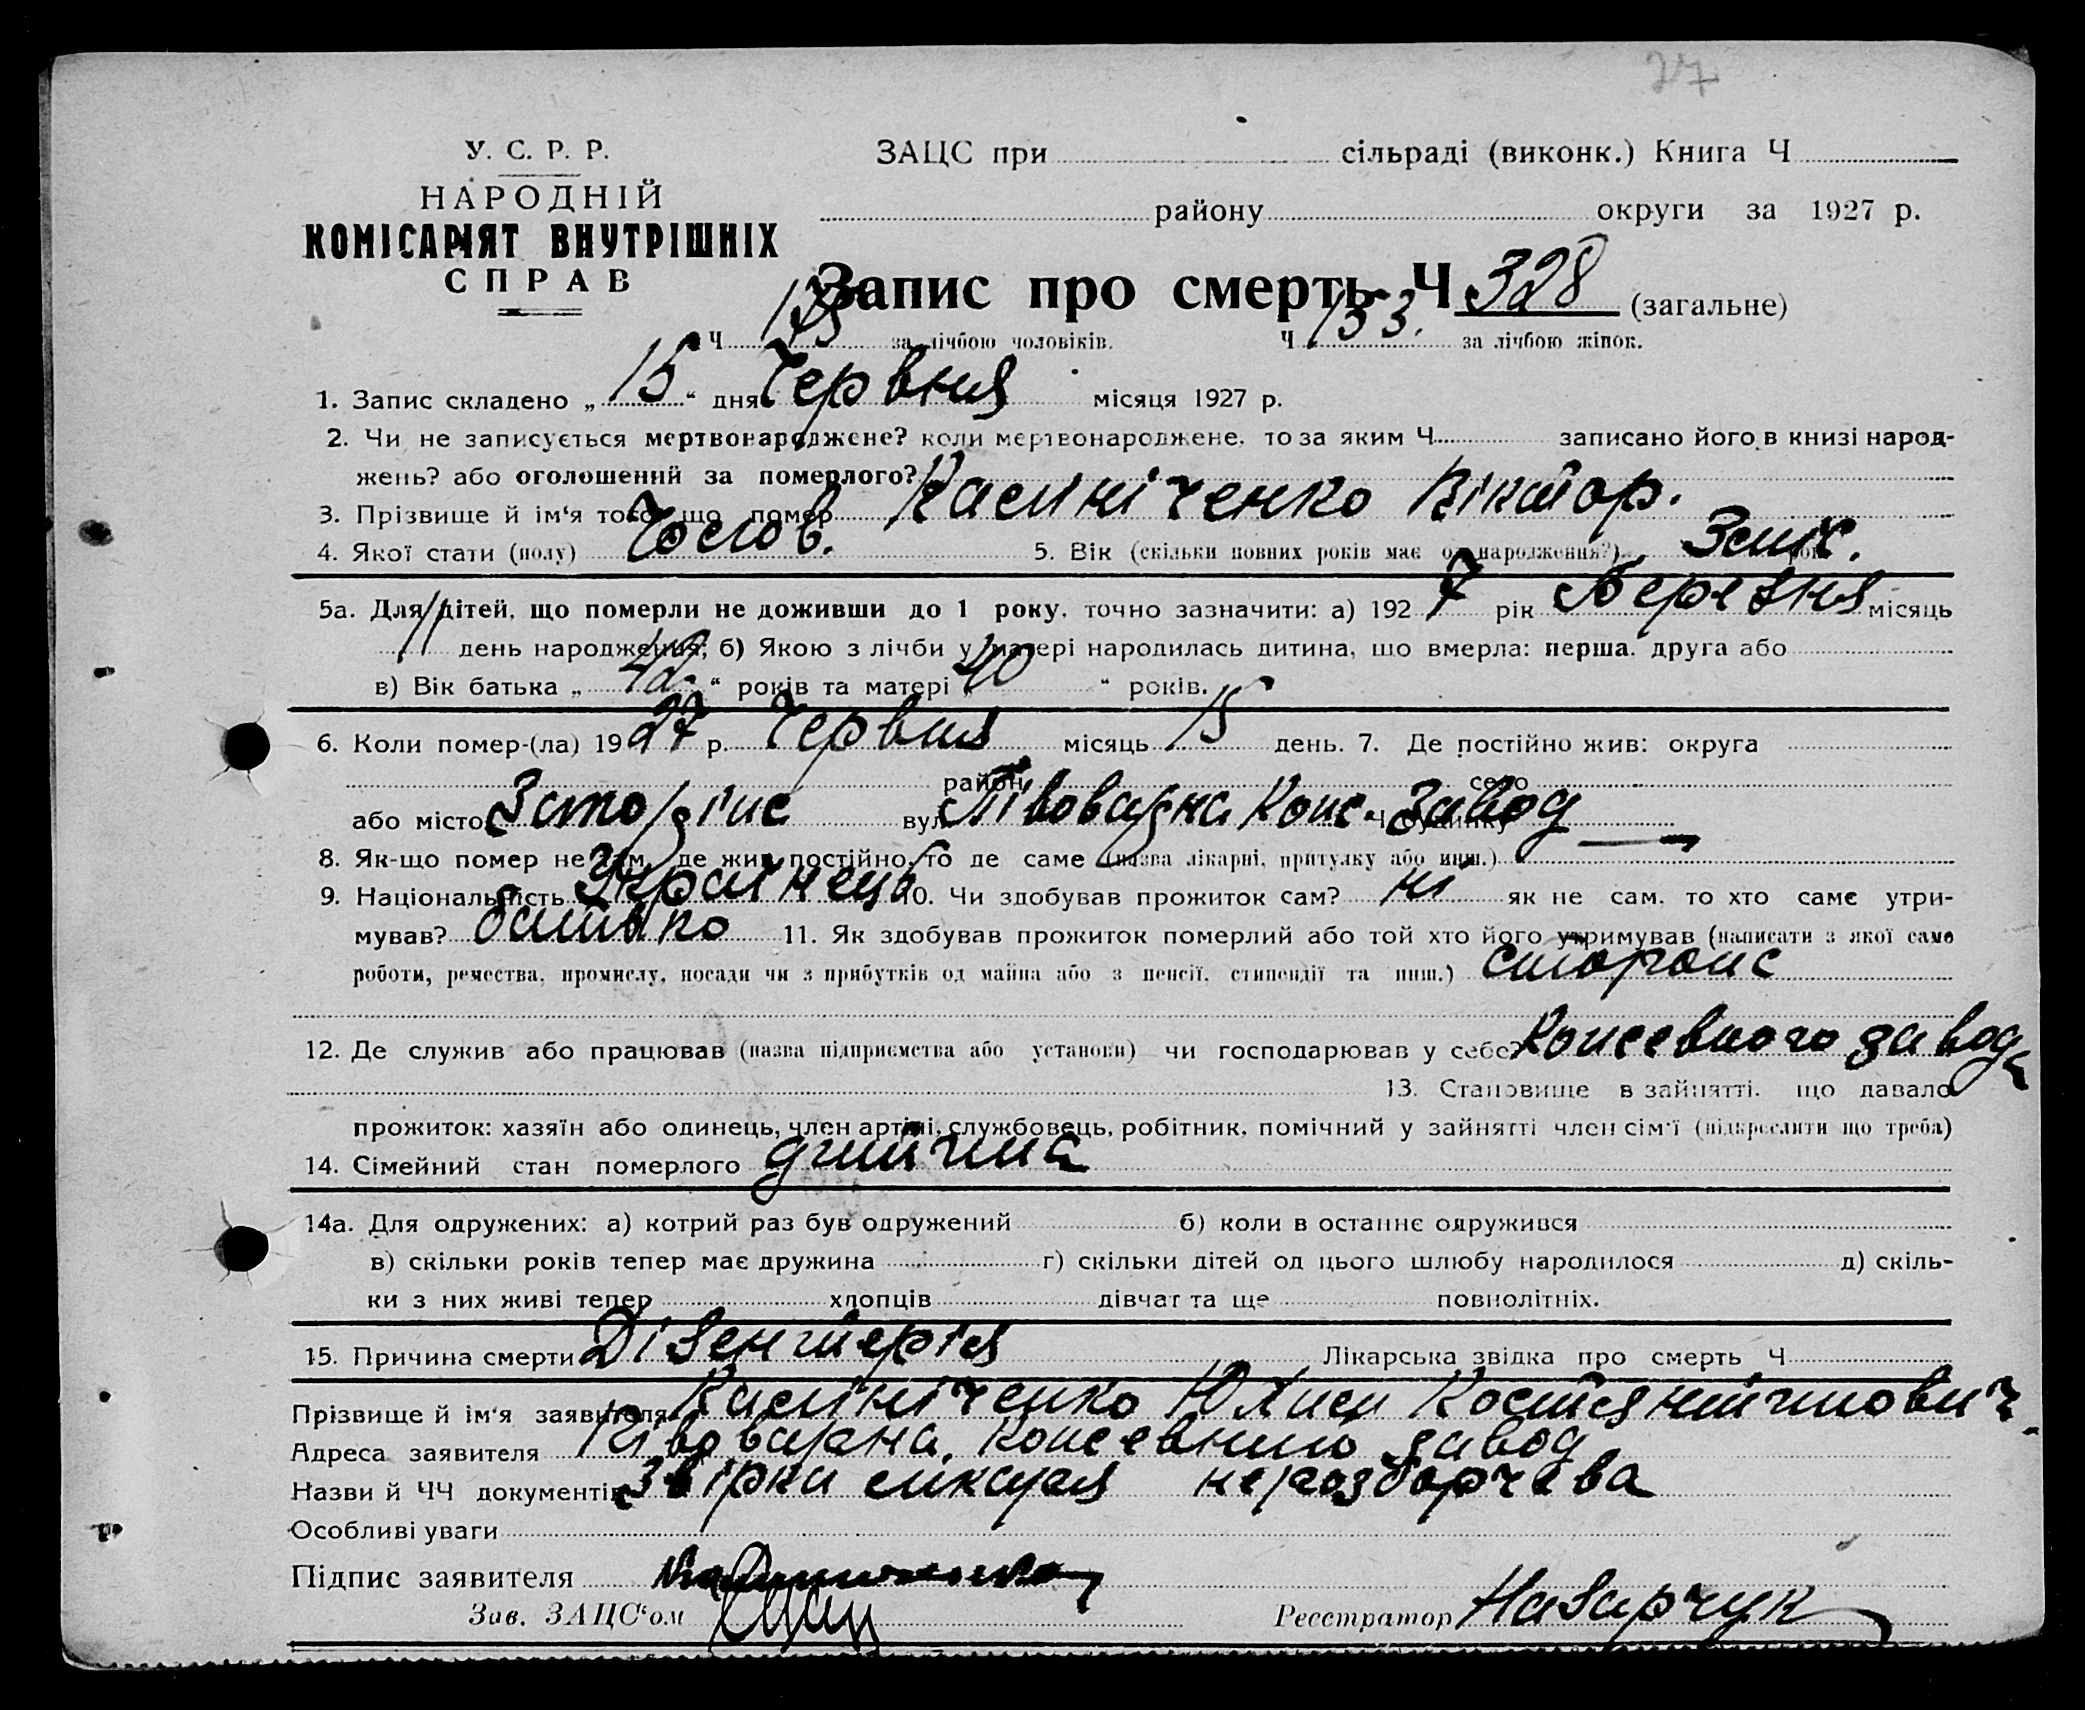 27
У. С. Р. Р.
НАРОДНІЙ
КОМІСАРІЯТ ВНУТРІШНІХ
СПРАВ
ЗАЦС при сільраді (виконк.) Книга Ч
району округи за 1927 р.
Запис про смерть Ч 328 (загальне)
Ч 175 за лічбою чоловіків. Ч 153. за лічбою жінок.
1. Запис складено „ 15 “ дня Червня місяця 1927 р.
2. Чи не записується мертвонароджене? коли мертвонароджене, то за яким Ч. записано його в книзі народ-
жень? або оголошений за померлого?
3. Прізвище й ім‘я того, що помер Калініченко Віктор.
4. Якої стати (полу) Чолов. 5. Вік (скільки повних років має од народження?) 3 міс.
5а. Для дітей, що померли не доживши до 1 року, точно зазначити: а) 192 7 рік Березня місяць
11 день народження; б) Якою з лічби у матері народилась дитина, що вмерла: перша, друга або
в) Вік батька „ 42 “ років та матері „ 40 “ років.
6. Коли помер-(ла) 19 27 р. Червня місяць 15 день. 7. Де постійно жив: округа
район село
або місто вул. Півоварна Конс. Завод Ч будинку
8. Як-що помер не там, де жив постійно, то де саме (назва лікарні, притулку або инш.)
9. Національність Українець 10. Чи здобував прожиток сам? ні як не сам, то хто саме утри-
мував? батько 11. Як здобував прожиток померлий або той хто його утримував (написати з якої само
роботи, ремества, промислу, посади чи з прибутків од майна або з пенсії, стипендії та инш.) сторож
12. Де служив або працював (назва підприємства або установи) чи господарював у себе? Консевного завода
13. Становище в зайнятті, що давало
прожиток: хазяїн або одинець, член артілі, службовець, робітник, помічний у зайнятті член сім‘ї (підкреслити що треба)
14. Сімейний стан померлого дитина
14а. Для одружених: а) котрий раз був одружений б) коли в останнє одружився
в) скільки років тепер має дружина г) скільки дітей од цього шлюбу народилося д) скіль-
ки з них живі тепер хлопців дівчат та ще повнолітніх.
15. Причина смерти Дізентерія Лікарська звідка про смерть Ч
Прізвище й ім‘я заявителя Калініченко Костянтинович
Адреса заявителя Півоварна, Консевний завод
Назви й ЧЧ документів Звірка лікаря нерозборчева
Особливі уваги
Підпис заявителя
Зав. ЗАЦС‘ом
Реєстратор Назарчук